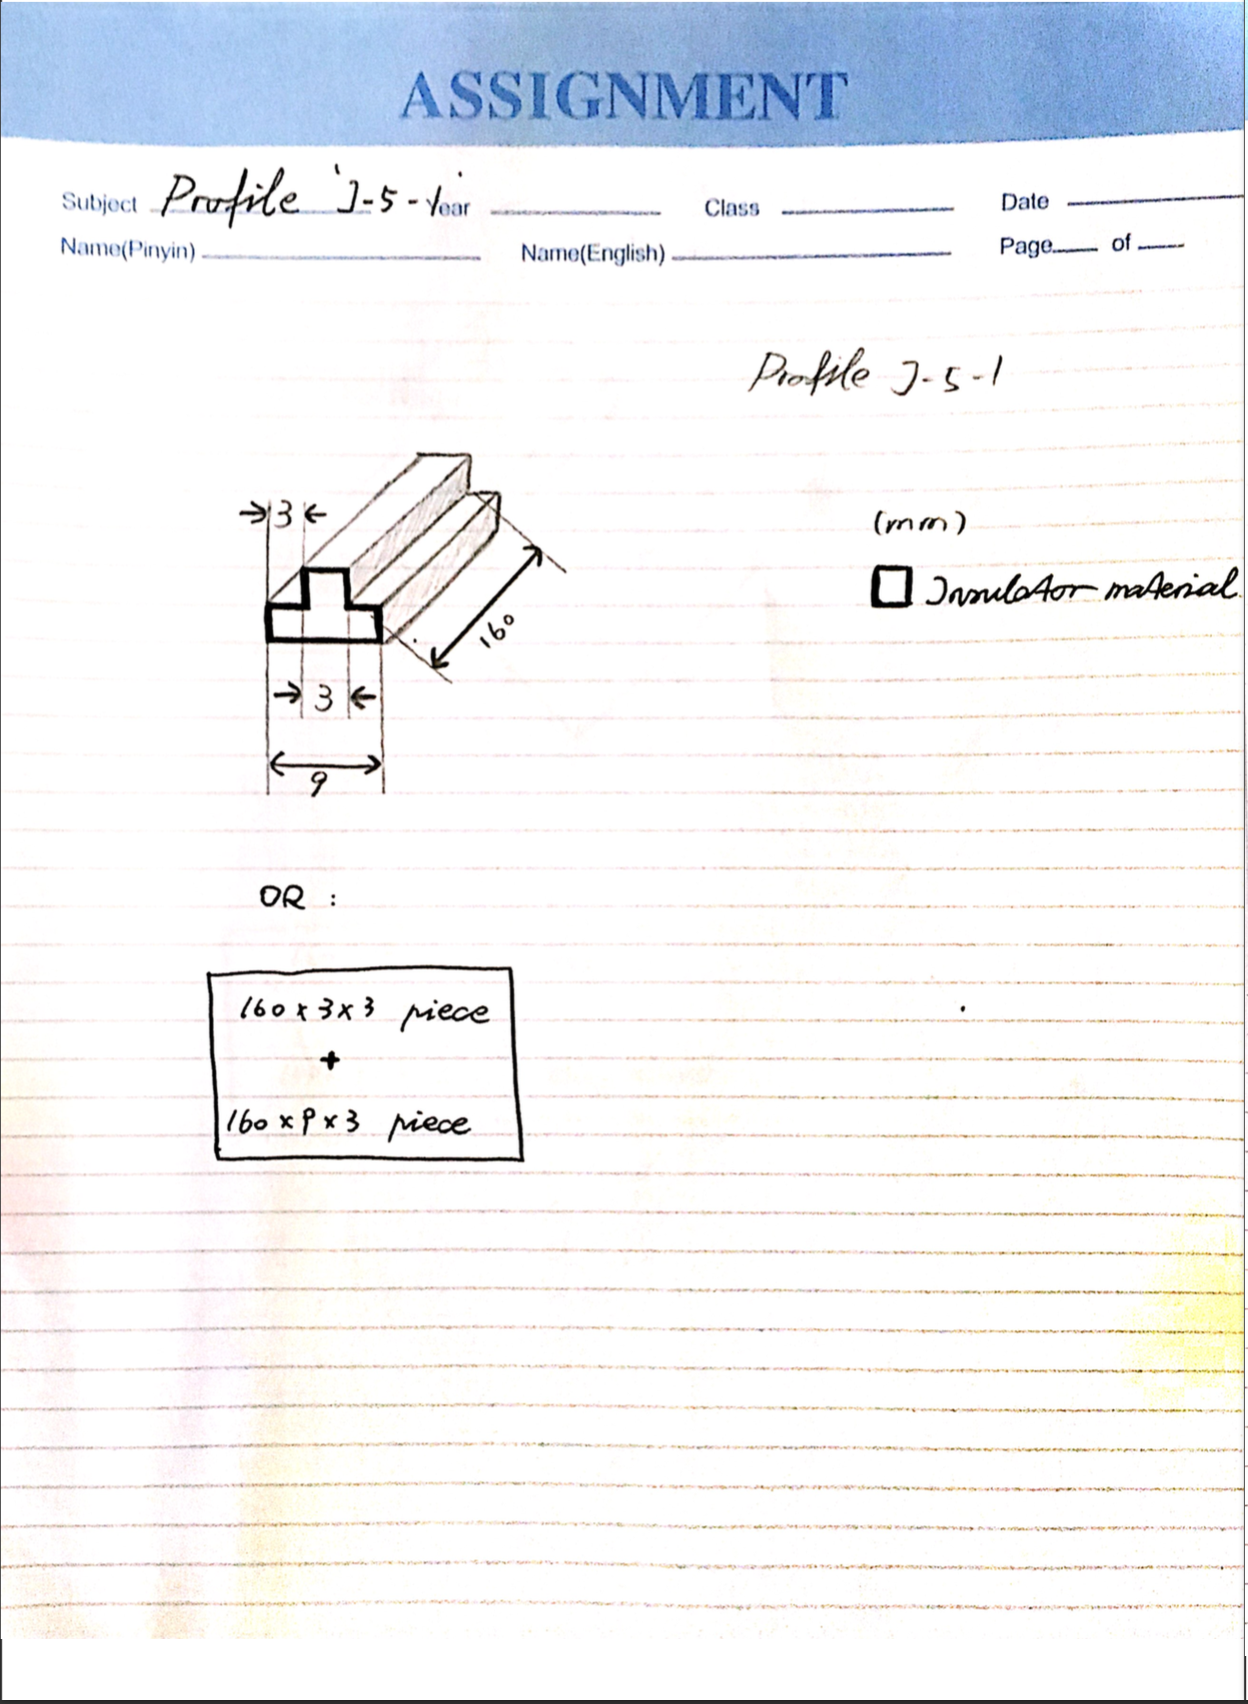 ASSIGNMENT
Subject Profile 'J-5-1' Year Class Date
Name(Pinyin) Name(English) Page of
Profile J-5-1
3
(mm)
Insulator material
160
3
9
OR :
160 x 3 x 3 piece
+
160 x 9 x 3 piece